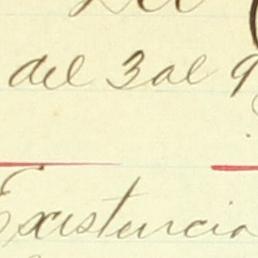 del 3 al 9
Existencia